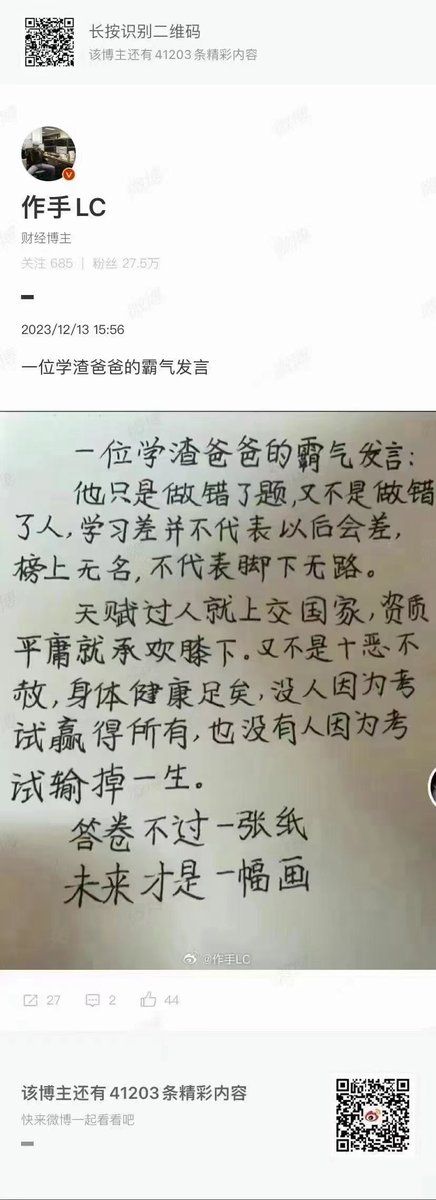 长按识别二维码
该博主还有41203条精彩内容
作手LC
财经博主
关注 685 | 粉丝 27.5万
2023/12/13 15:56
一位学渣爸爸的霸气发言
一位学渣爸爸的霸气发言:
他只是做错了题,又不是做错
了人,学习差并不代表以后会差,
榜上无名,不代表脚下无路。
天赋过人就上交国家,资质
平庸就承欢膝下。又不是十恶不
赦,身体健康足矣,没人因为考
试赢得所有,也没有人因为考
试输掉一生。
答卷不过一张纸
未来才是一幅画
@作手LC
27 2 44
该博主还有41203条精彩内容
快来微博一起看看吧